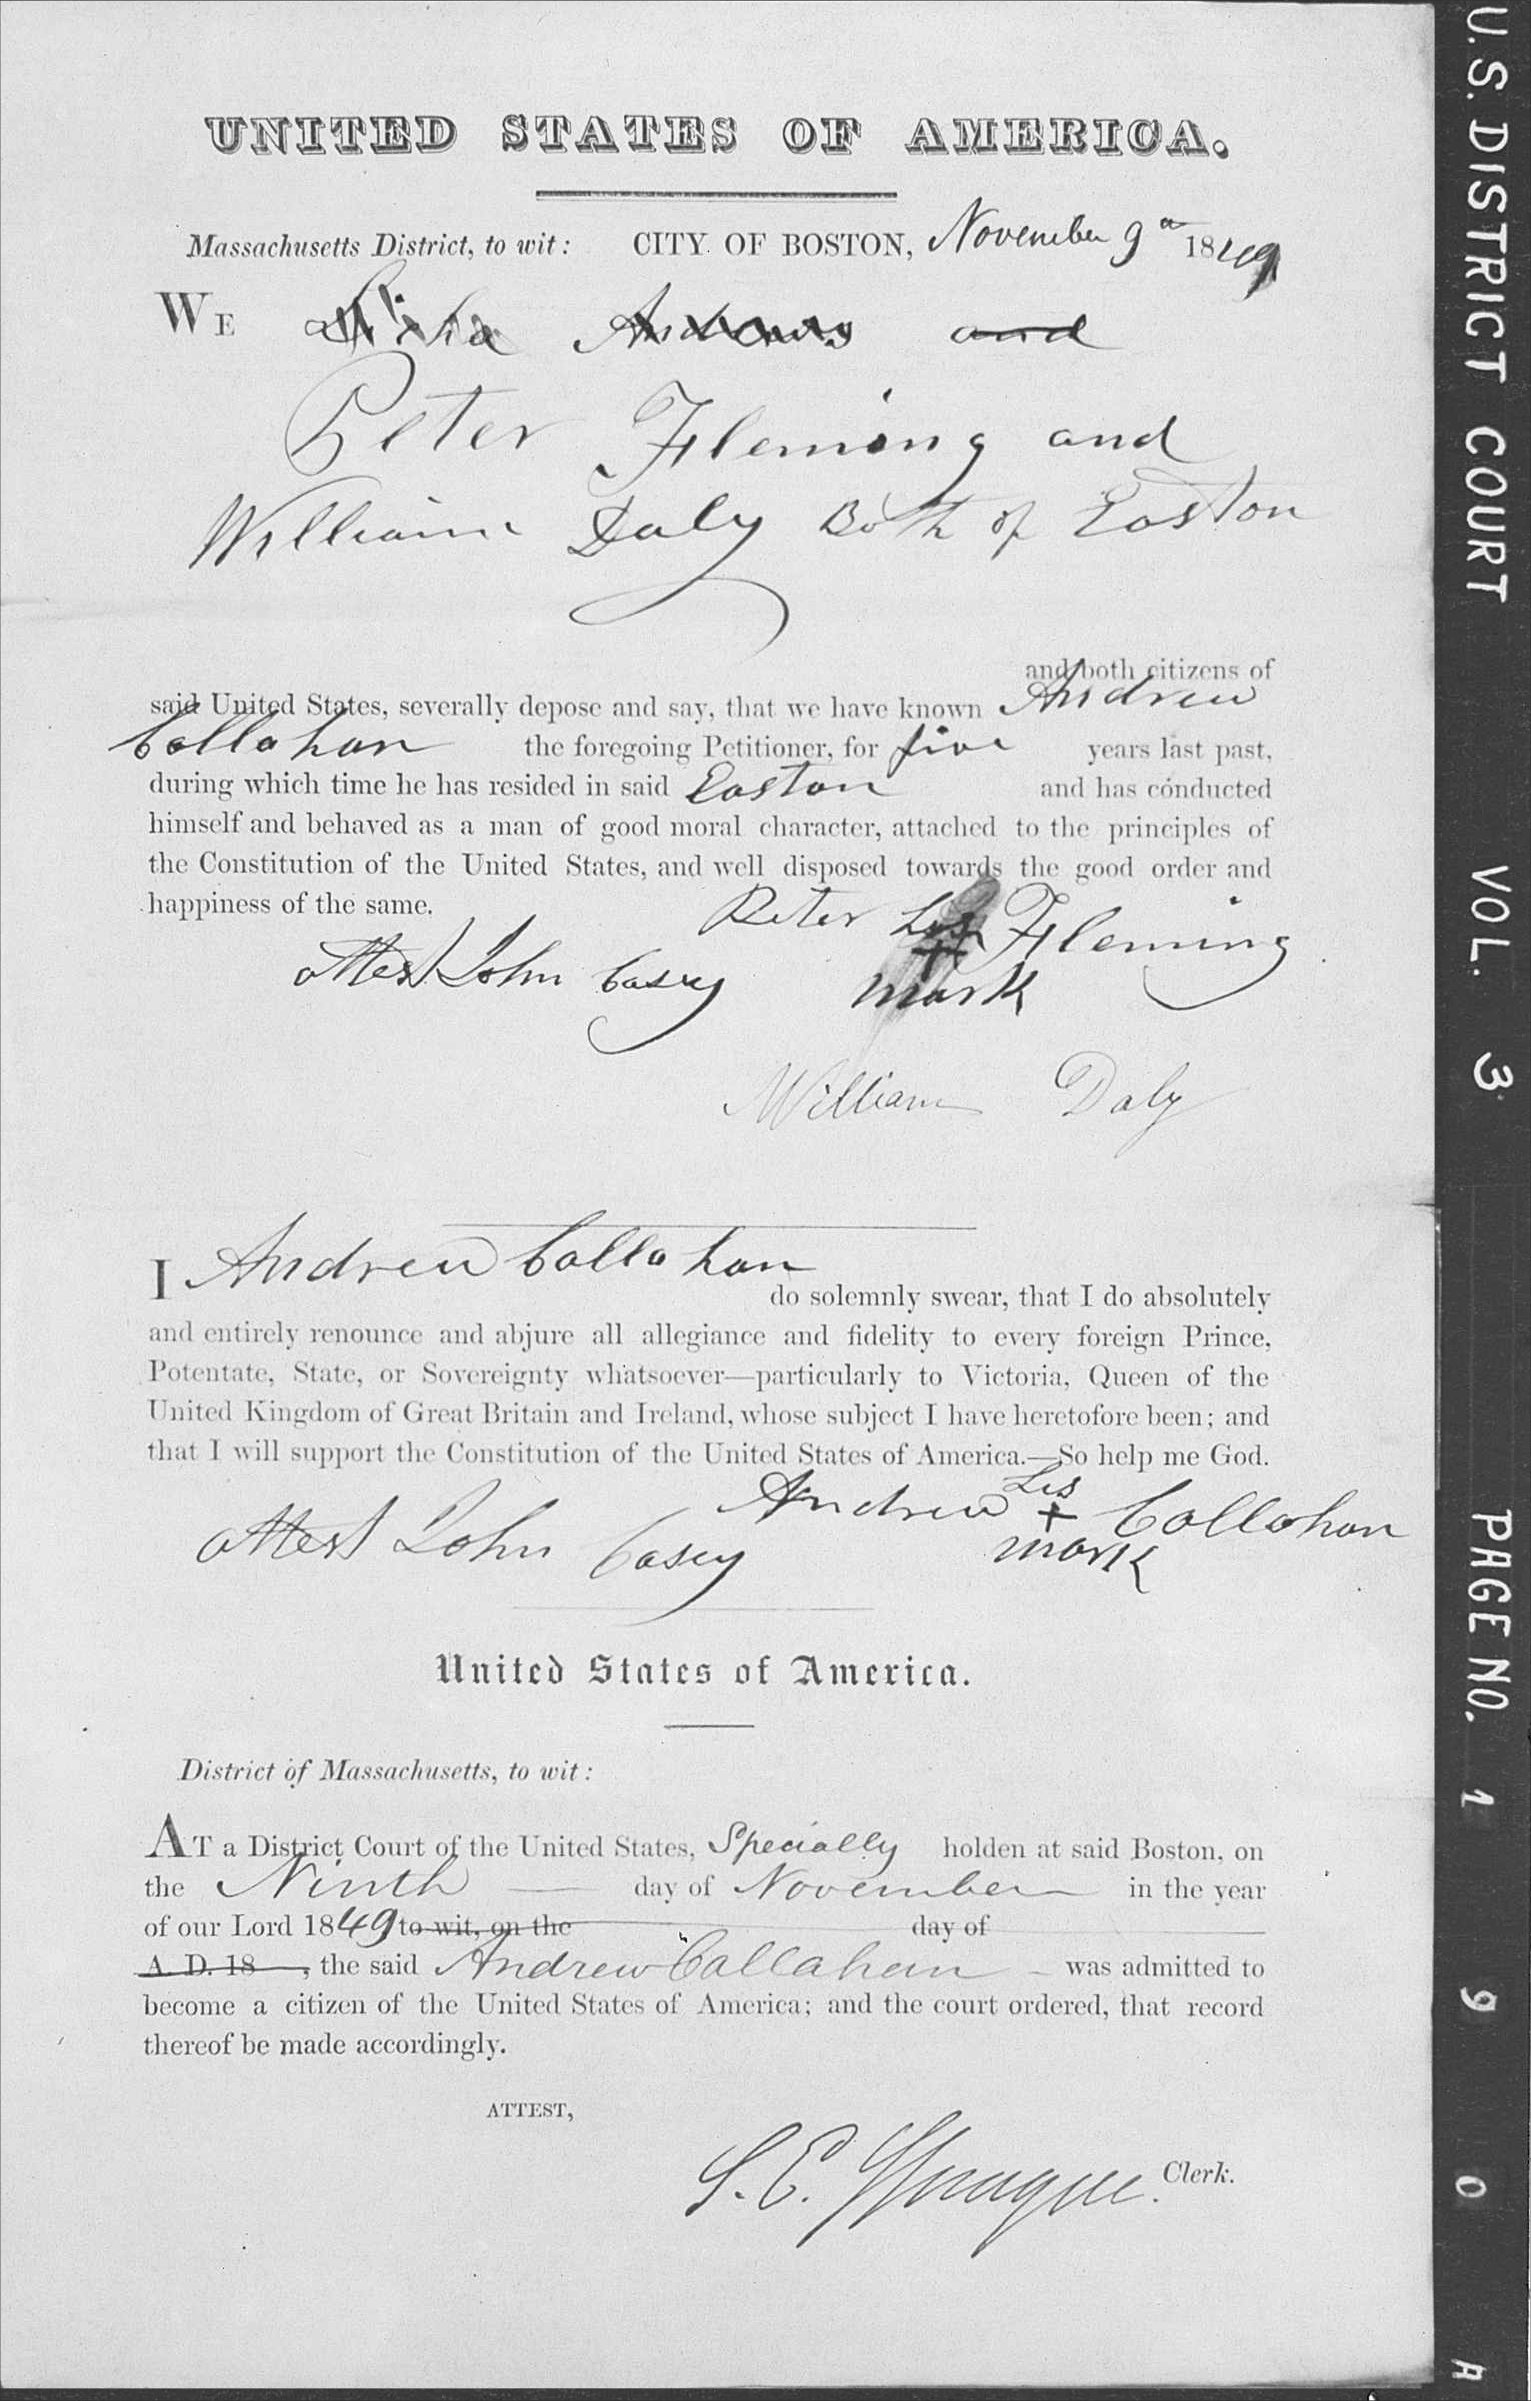 UNITED STATES OF AMERICA.
Massachusetts District, to wit: CITY OF BOSTON, November 9 1849
WE Andrews and
Peter Fleming and
William Daly Both of Easton
and both citizens of
said United States, severally depose and say, that we have known Andrew
Callahan the foregoing Petitioner, for five years last past,
during which time he has resided in said Easton and has conducted
himself and behaved as a man of good moral character, attached to the principles of
the Constitution of the United States, and well disposed towards the good order and
happiness of the same.
Peter his + mark Fleming
attest John Casey
William Daly
I Andrew Callahan
do solemnly swear, that I do absolutely
and entirely renounce and abjure all allegiance and fidelity to every foreign Prince,
Potentate, State, or Sovereignty whatsoever—particularly to Victoria, Queen of the
United Kingdom of Great Britain and Ireland, whose subject I have heretofore been; and
that I will support the Constitution of the United States of America.—So help me God.
Andrew his + mark Callahan
attest John Casey
United States of America.
District of Massachusetts, to wit:
AT a District Court of the United States, Specially holden at said Boston, on
the Ninth day of November in the year
of our Lord 1849 to wit, on the day of
A. D. 18 , the said Andrew Callahan was admitted to
become a citizen of the United States of America; and the court ordered, that record
thereof be made accordingly.
ATTEST,
S. E. Sprague. Clerk.
U.S. DISTRICT COURT VOL. 3 PAGE NO. 190 A